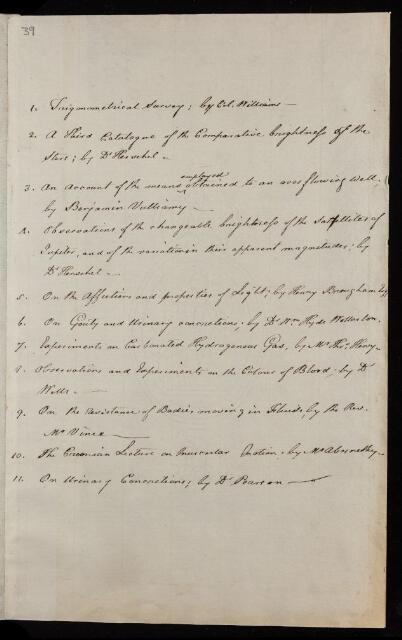 39
1. Trigonometrical Survey; by Col. Williams —
2. A Third Catalogue of the Comparative brightness of the
Stars; by Dr. Herschel. —
employed
3. An account of the means obtained to an overflowing Well.
by Benjamin Vulliamy —
4. Observations of the changeable brightness of the Satellites of
Jupiter, and of the variation in their apparent magnitudes; by
Dr. Herschel. —
5. On the Affections and properties of Light; by Henry Brougham Esq
6. On Gouty and Urinary concretions; by Dr. Wm. Hyde Wollaston.
7. Experiments on Carbonated Hydrogenous Gas, by Mr. Thos. Henry —
8. Observations and Experiments on the Colour of Blood; by Dr
Wells. —
9. On the resistance of Bodies moving in Fluids, by the Rev.
Mr Vince —
10. The Croonian Lecture on Muscular Motion; by Mr Abernethy —
11. On Urinary Concretions; by Dr. Pearson —